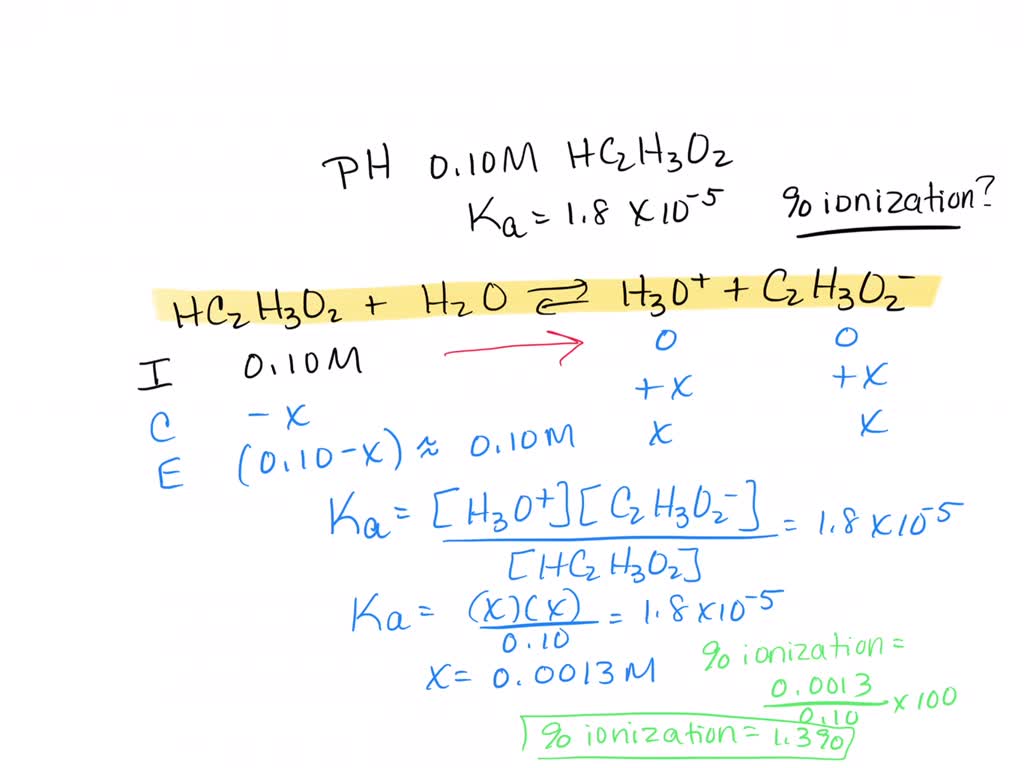 pH 0.10M HC₂H₃O₂
Ka = 1.8 x 10⁻⁵ % ionization?
HC₂H₃O₂ + H₂O ⇌ H₃O⁺ + C₂H₃O₂⁻
I 0.10M → 0 0
C - x + x + x
E (0.10 - x) ≈ 0.10M x x
Ka = [H₃O⁺][C₂H₃O₂⁻] / [HC₂H₃O₂] = 1.8 x 10⁻⁵
Ka = (x)(x) / 0.10 = 1.8 x 10⁻⁵
x = 0.0013 M
% ionization =
0.0013 / 0.10 x 100
% ionization = 1.3%